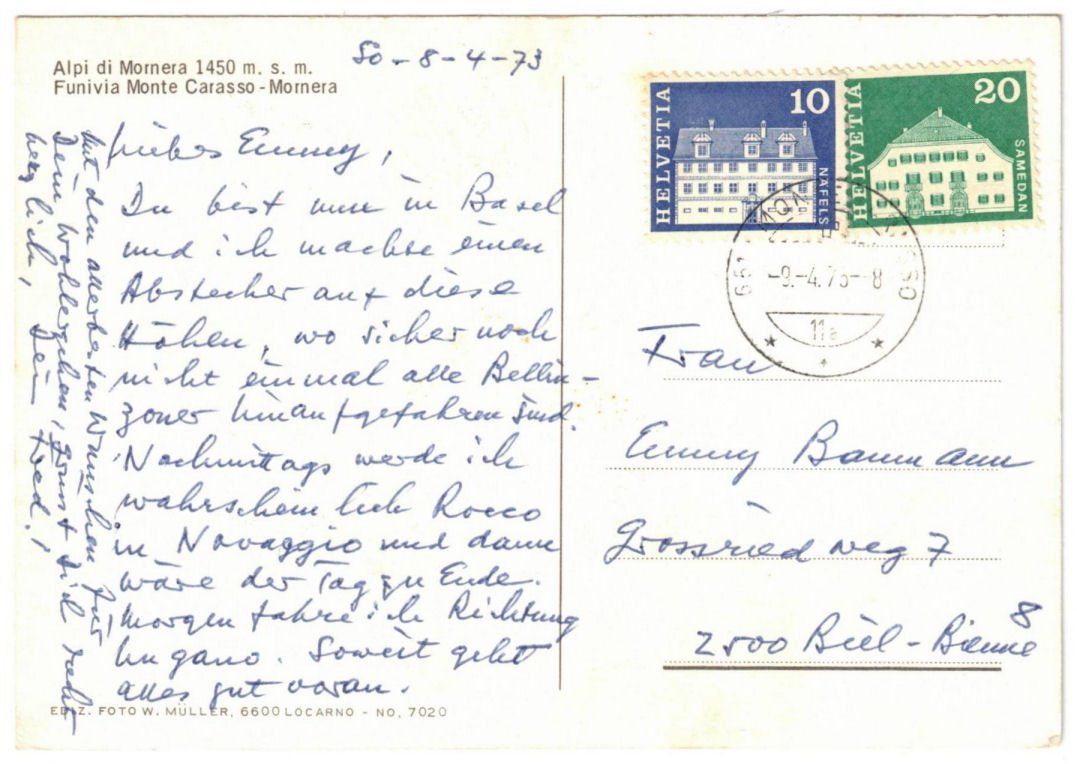 Alpi di Mornera 1450 m. s. m.
Funivia Monte Carasso - Mornera
So - 8 - 4 - 73
Liebes Emmy,
Du bist nun in Basel
und ich machte einen
Abstecher auf diese
Höhen, wo sicher noch
nicht einmal alle Bellin-
zoner hinaufgefahren sind.
Nachmittags werde ich
wahrscheinlich Rocco
in Novaggio und dann
wäre der Tag zu Ende.
Morgen fahre ich Richtung
Lugano. Soweit geht
alles gut voran.
Mit den allerbesten Wünschen für
Dein Wohlergehen, grüsst Dich recht
herzlich, Dein Fred!
EDIZ. FOTO W. MÜLLER, 6600 LOCARNO - NO. 7020
HELVETIA 10 NÄFELS
HELVETIA 20 SAMEDAN
651
-9.-4.73-8
11a
Frau
Emmy Baumann
Grossriedweg 7
2500 Biel-Bienne 8